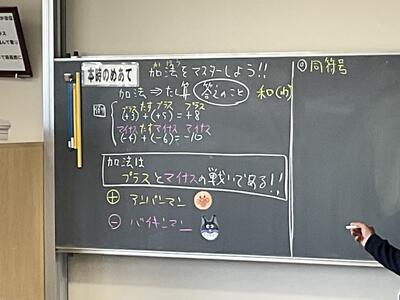 本時のめあて
加法をマスターしよう!!
かほう
加法 ⇒ たし算 答えのこと 和(わ)
プラス たす プラス プラス
(+3) + (+5) = +8
マイナス たす マイナス マイナス
(-4) + (-6) = -10
加法は
プラスとマイナスの戦いである!!
⊕ アンパンマン
⊖ バイキンマン
◎ 同符号